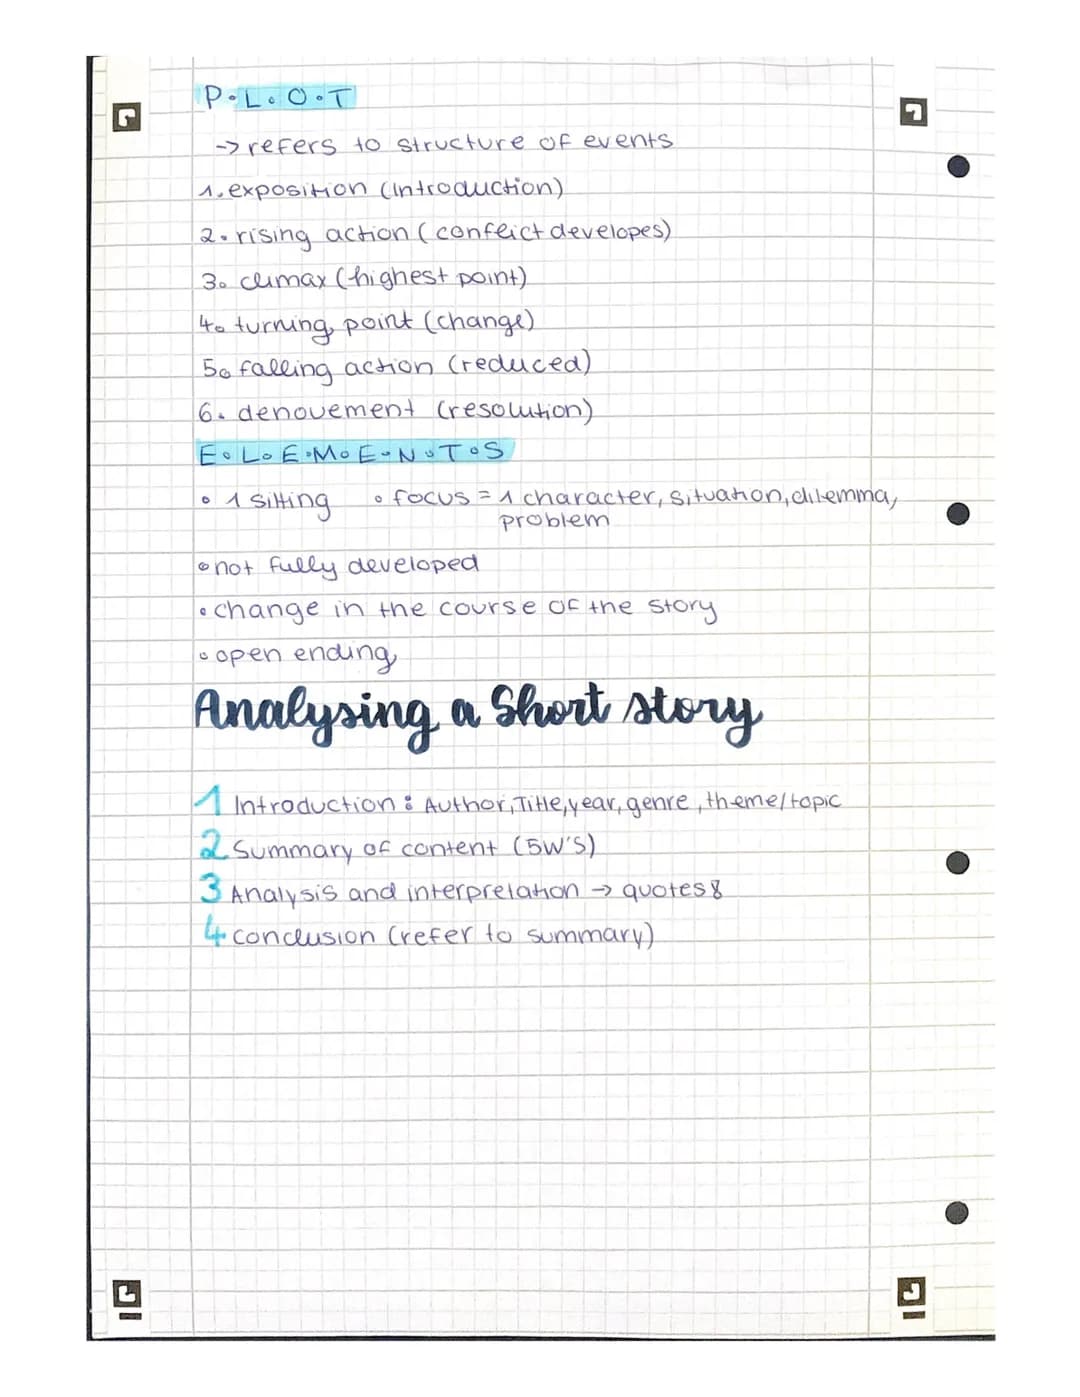 P.L.O.T
-> refers to structure of events
1. exposition (introduction)
2. rising action (conflict developes)
3. climax (highest point)
4. turning point (change)
5. falling action (reduced)
6. denouement (resolution)
E.L.E.M.E.N.T.S
• 1 sitting • focus = 1 character, situation, dilemma,
problem
• not fully developed
• change in the course of the story
• open ending
Analysing a Short story
1 Introduction: Author, Title, year, genre, theme/topic
2 Summary of content (5W'S)
3 Analysis and interpretation → quotes
4 conclusion (refer to summary)